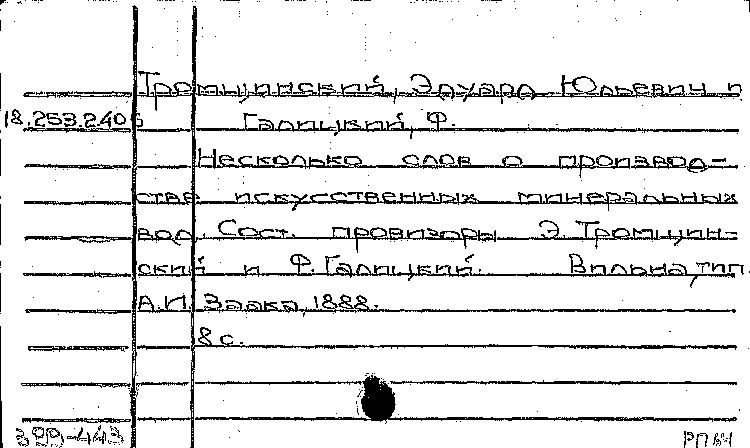 Тромщинский, Эдуард Юльевич и
18.253.240б Галицкий, Ф.
Несколько слов о производ-
стве искусственных минеральных
вод. Сост. провизоры Э. Тромщин-
ский и Ф. Галицкий. Вильна, тип.
А.И. Зака, 1888.
8 с.
399-443